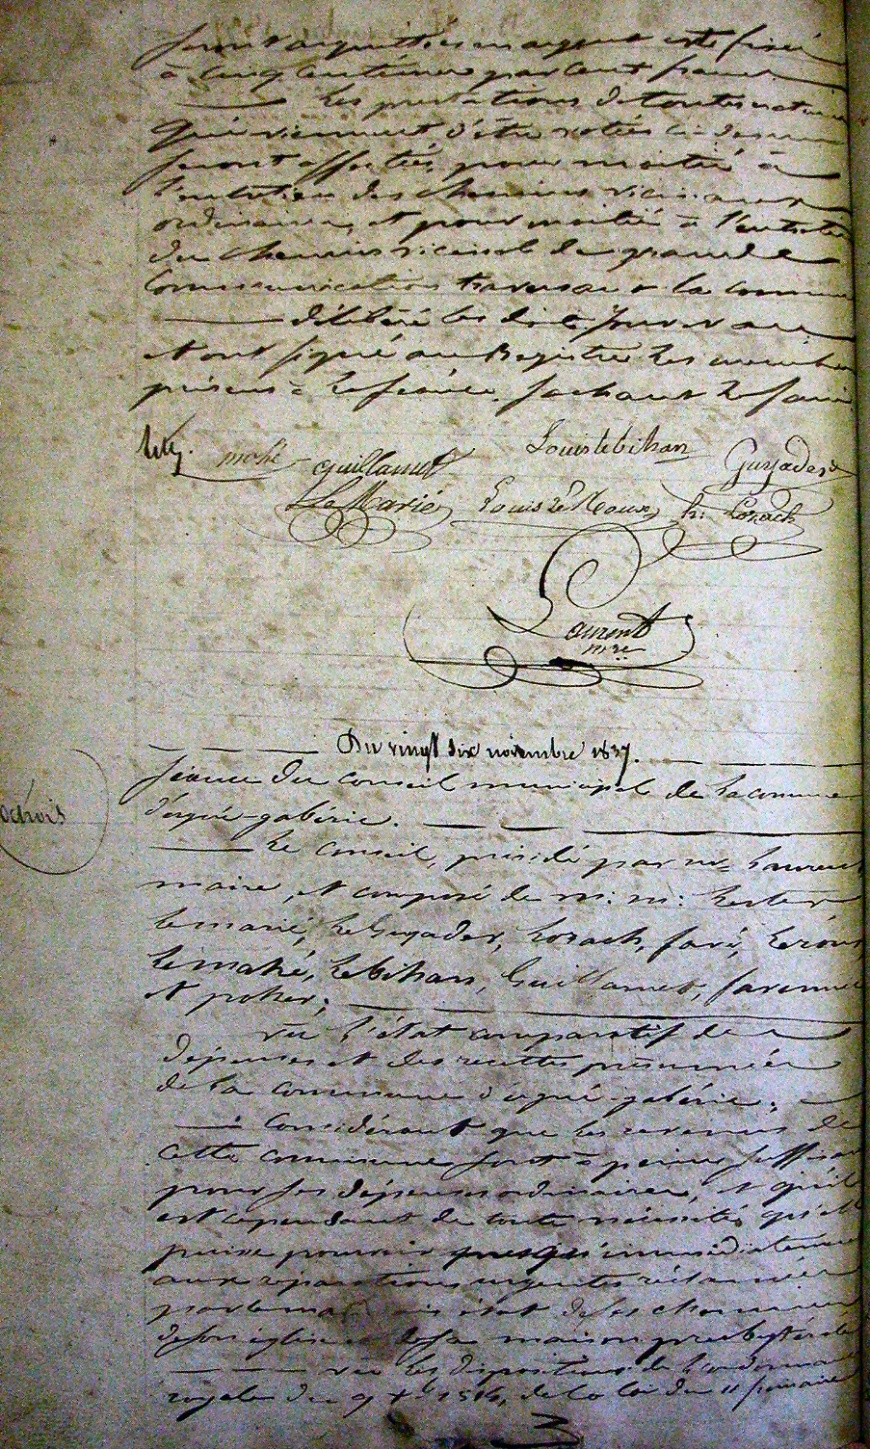 seront acquittées en argent est fixé
à cinq centimes par cent francs
Les prestations de toutes natures
qui viennent d'être votées ci dessus
seront affectées, pour moitié à
l'entretien des chemins vicinaux
ordinaires, et pour moitié à l'entretien
du chemin vicinal de grande
communication traversant la commune
délibéré les dits jour et an
et ont signé au Registre les membres
présens à la séance, sachant le faire
mahé Guillamet Louis le bihan Guyader
Le Marié Louis le Roux h: Lozach
Laurent
mre
Du vingt six novembre 1837.
Séance du conseil municipal de la commune
octrois
d'ergué-gabéric.
Le conseil, présidé par mr Laurent
maire, et composé de m: m:
le marié, le Guyader, Lozach,
le mahé, le bihan, Guillamet,
et poher;
vu l'état comparatif des
dépenses et des recettes présumées
de la commune d'ergué-gabéric;
Considérant que les revenus de
cette commune sont à peine suffisans
pour ses dépenses ordinaires, et qu'il
est cependant de toute nécessité qu'elle
puisse pourvoir presqu'immédiatement
aux réparations urgentes réclamées
par le mauvais état de ses chemins
de son église et de sa maison presbytérale
vu les dispositions de l'ordonnance
royale du 9 Xbre 1814, de la loi du 11 frimaire